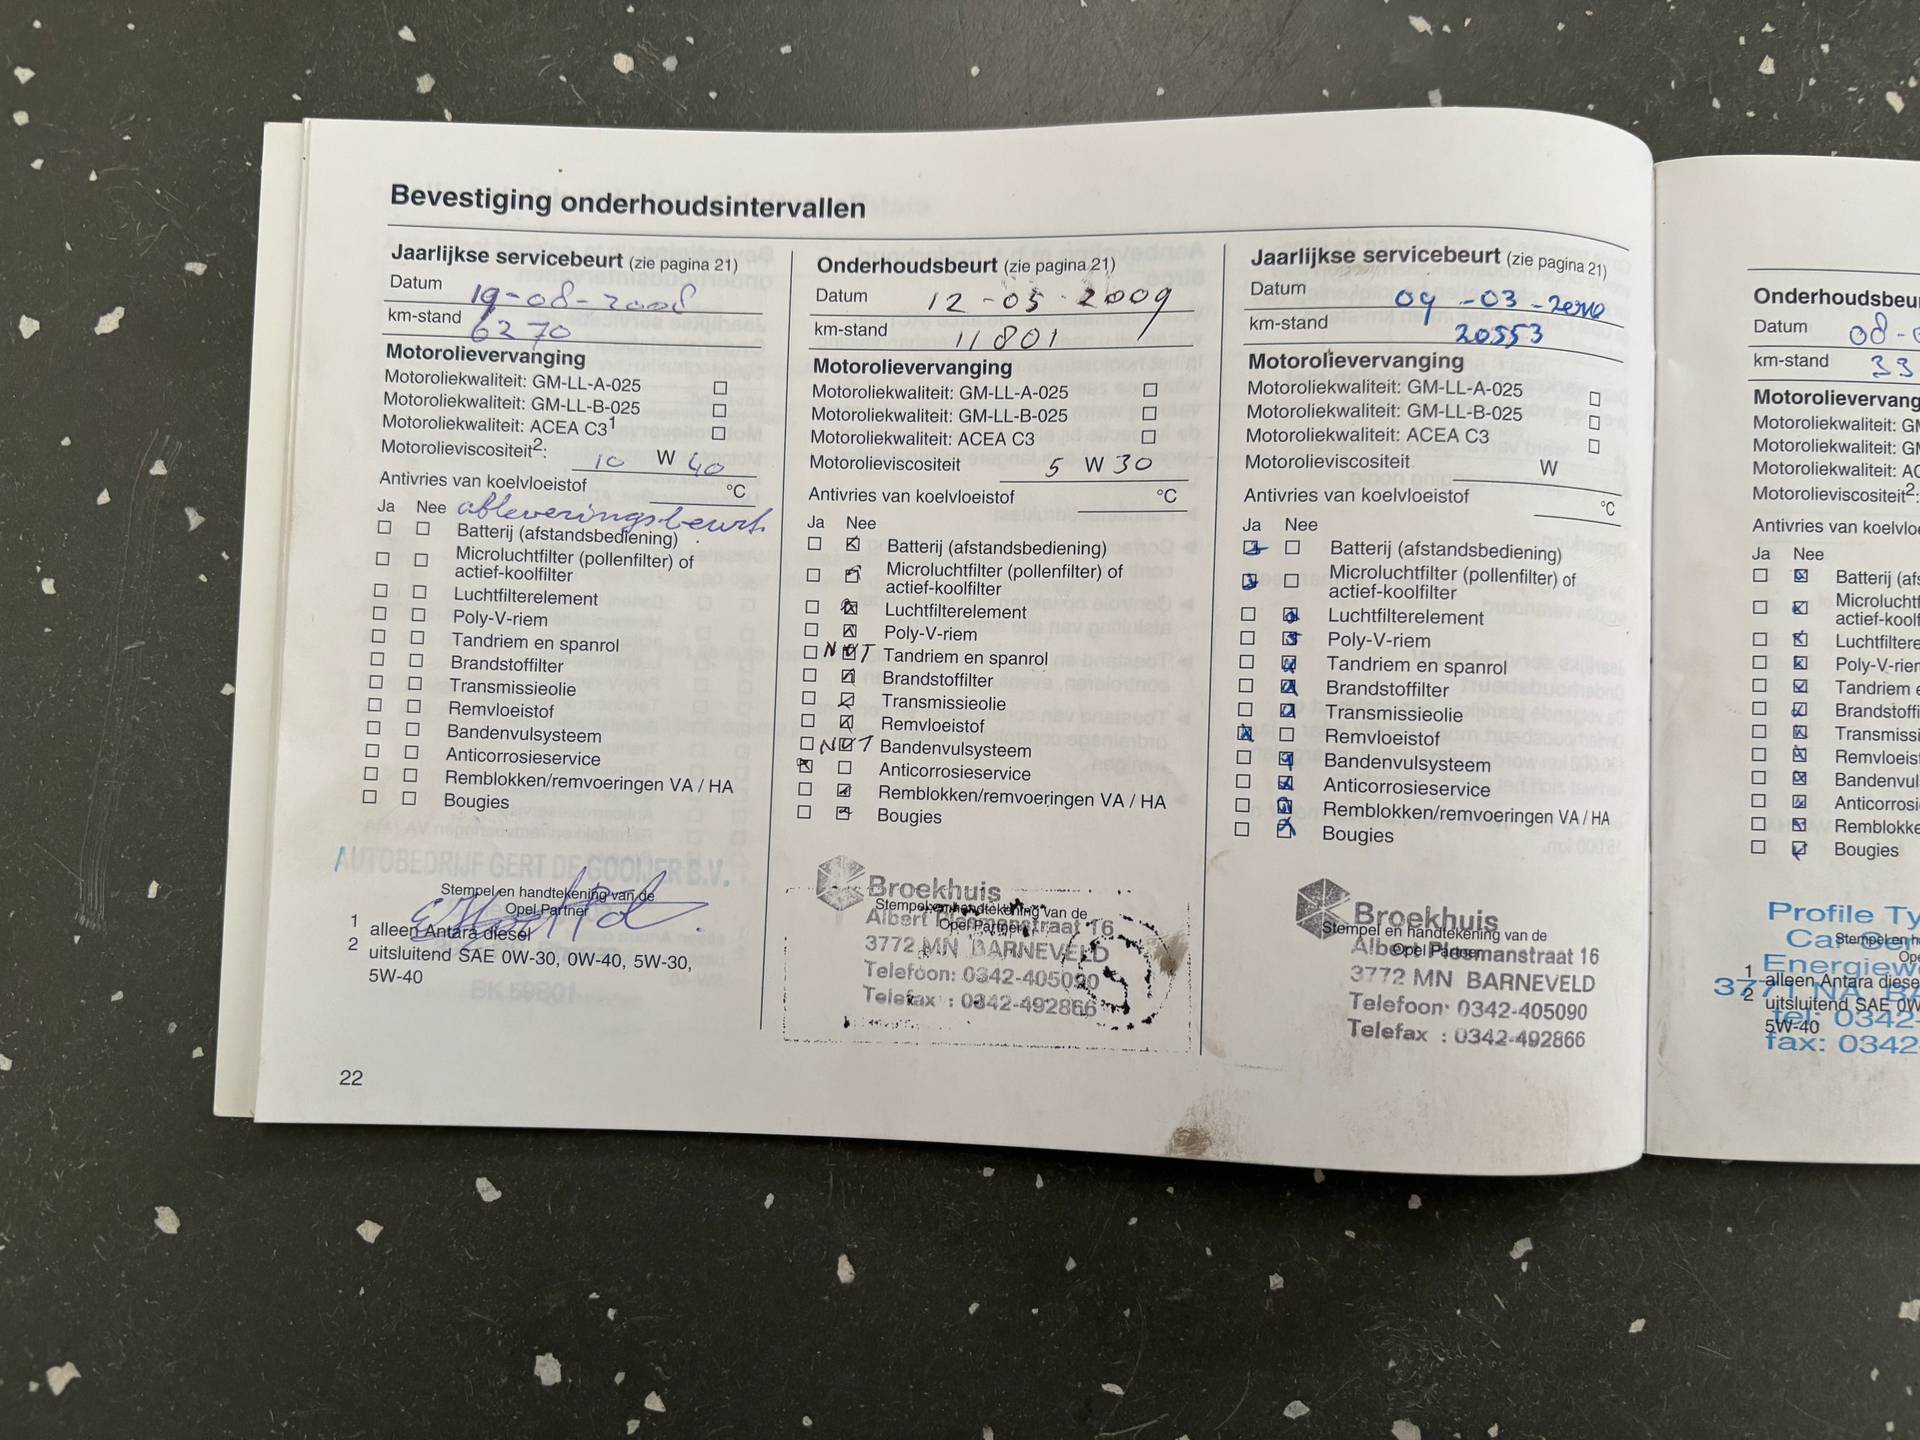 Bevestiging onderhoudsintervallen
Jaarlijkse servicebeurt (zie pagina 21)
Datum 19-08-2008
km-stand 6270
Motorolievervanging
Motoroliekwaliteit: GM-LL-A-025
Motoroliekwaliteit: GM-LL-B-025
Motoroliekwaliteit: ACEA C3¹
Motorolieviscositeit²: 10 W 40
Antivries van koelvloeistof °C
Ja Nee afleveringsbeurt.
Batterij (afstandsbediening)
Microluchtfilter (pollenfilter) of
actief-koolfilter
Luchtfilterelement
Poly-V-riem
Tandriem en spanrol
Brandstoffilter
Transmissieolie
Remvloeistof
Bandenvulsysteem
Anticorrosieservice
Remblokken/remvoeringen VA / HA
Bougies
AUTOBEDRIJF GERT DE GOOIJER B.V.
Stempel en handtekening van de
Opel Partner
1 alleen Antara diesel
2 uitsluitend SAE 0W-30, 0W-40, 5W-30,
5W-40
22
Onderhoudsbeurt (zie pagina 21)
Datum 12-05-2009
km-stand 11801
Motorolievervanging
Motoroliekwaliteit: GM-LL-A-025
Motoroliekwaliteit: GM-LL-B-025
Motoroliekwaliteit: ACEA C3
Motorolieviscositeit 5 W 30
Antivries van koelvloeistof °C
Ja Nee
Batterij (afstandsbediening)
Microluchtfilter (pollenfilter) of
actief-koolfilter
Luchtfilterelement
Poly-V-riem
NVT Tandriem en spanrol
Brandstoffilter
Transmissieolie
Remvloeistof
NVT Bandenvulsysteem
Anticorrosieservice
Remblokken/remvoeringen VA / HA
Bougies
Broekhuis
Stempel en handtekening van de
Albert Plesmanstraat 16
Opel Partner
3772 MN BARNEVELD
Telefoon: 0342-405090
Telefax : 0342-492866
Jaarlijkse servicebeurt (zie pagina 21)
Datum 09-03-
km-stand 20553
Motorolievervanging
Motoroliekwaliteit: GM-LL-A-025
Motoroliekwaliteit: GM-LL-B-025
Motoroliekwaliteit: ACEA C3
Motorolieviscositeit W
Antivries van koelvloeistof °C
Ja Nee
Batterij (afstandsbediening)
Microluchtfilter (pollenfilter) of
actief-koolfilter
Luchtfilterelement
Poly-V-riem
Tandriem en spanrol
Brandstoffilter
Transmissieolie
Remvloeistof
Bandenvulsysteem
Anticorrosieservice
Remblokken/remvoeringen VA / HA
Bougies
Broekhuis
Stempel en handtekening van de
Albert Plesmanstraat 16
Opel Partner
3772 MN BARNEVELD
Telefoon: 0342-405090
Telefax : 0342-492866
Onderhoudsbeu
Datum 08-
km-stand 33
Motorolievervang
Motoroliekwaliteit: G
Motoroliekwaliteit: GM
Motoroliekwaliteit: AC
Motorolieviscositeit²:
Antivries van koelvlo
Ja Nee
Batterij (afs
Microluchtf
actief-koolf
Luchtfiltere
Poly-V-rien
Tandriem e
Brandstoffi
Transmissi
Remvloeis
Bandenvul
Anticorrosi
Remblokke
Bougies
Profile Ty
Car Ser
Stempel en h
Energiew
1 alleen Antara diese
2 uitsluitend SAE 0W
5W-40
tel: 0342-
fax: 0342